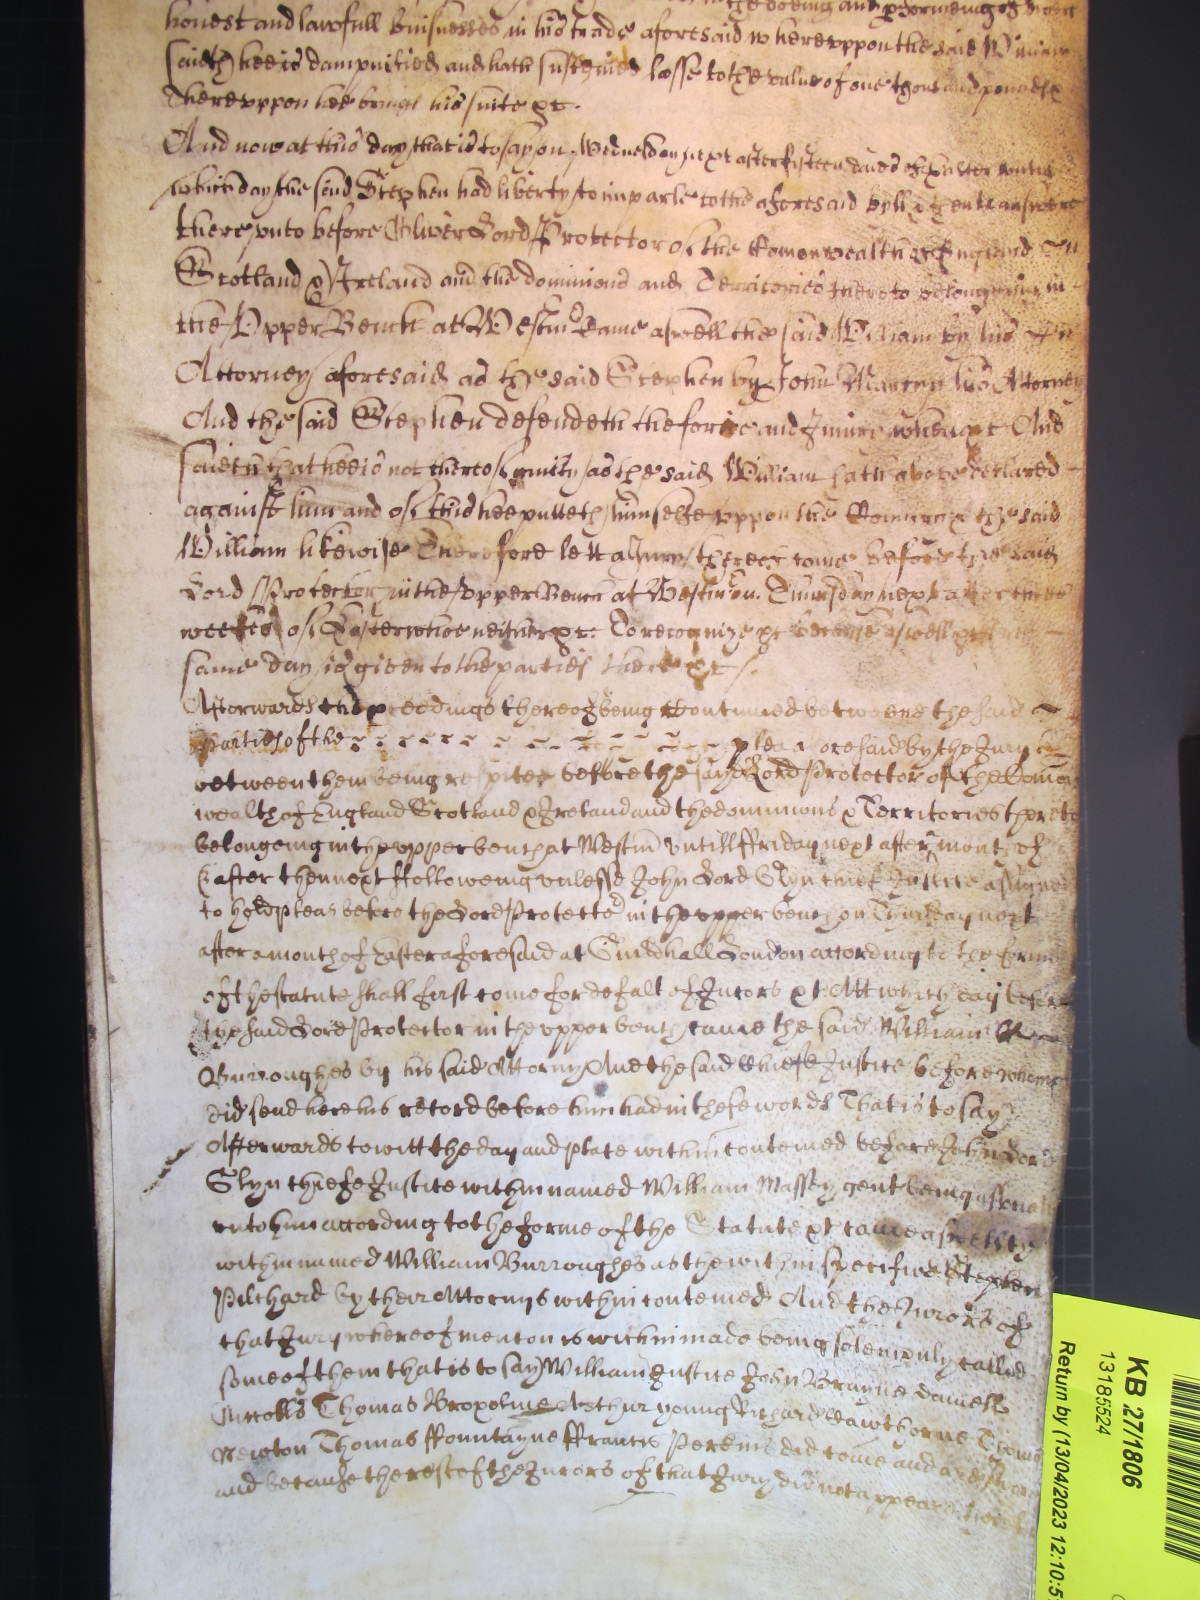 in the doeing and pformeing of
honest and lawfull buisnesses in his trade aforesaid whereuppon the said William
saieth hee is dampnified and hath susteined losse to the value of one thousand poundes &
thereuppon hee brings his suite &c.
And now at this day that is to say on Wednesday next after fifteen daies of Easter untill
which day the said Stephen had liberty to imparle to the aforesaid byll & then to answere
thereunto before Oliver Lord Protector of the Comonwealth of England
Scotland & Ireland and the dominions and Territories thereto belongeing in
the Upper Bench at Westm Came aswell the said William by his
Attorney aforesaid as the said Stephen by John Martyn his Attorney
And the said Stephen defendeth the force and Iniury when &c And
saieth that hee is not thereof guilty as the said William hath above declared
against him and of this hee putteth himselfe uppon the Countrey & the said
William likewise Therefore lett a Iury thereof come before the said
Lord Protector in the upper Bench at Westm on Thursday next after three
weekes of Easter whoe neither &c. To recognize &c because aswell &c the
same day is given to the parties there &c
Afterwards the pceedings thereof being Continued betweene the said
parties of the plea aforesaid by the Iury
betweene them being respited before the said Lord Protector of the Comon
wealth of England Scotland & Ireland and the dominions & Territories thereto
belongeing in the upper bench at Westm untill ffriday next after month of
Easter then next ffolloweing unlesse John Lord Glyn chief Iustice assigned
to hold pleas before the Lord Protector in the upper bench on Thursday next
after a month of Easter aforesaid at Guildhall London according to the forme
of the statute shall first come for defalt of Jurors &c Att which day before
the said Lord Protector in the upper bench came the said William
Burroughes by his said Attorny And the said Chiefe Justice before whome
did send here his record before him had in these words That is to say
Afterwards to witt the day and place within conteined before John Lord
Glyn chiefe Justice within named William Massey gent being associated
unto him acording to the forme of the Statute &c came aswell the
within named William Burroughes as the within specified Stephen
Pilchard by their Attornys within conteined And the Jurors of
that Jury whereof mention is within made being solempnly called
some of them that is to say William Justice John Brayne Daniell
Nicolls Thomas Broxolme Arthur young Richard Hawthorne Thomas
Newton Thomas ffountayne ffrancis Perkins did come and
and because the rest of the Jurors of that Jury did not appeare
KB 27/1806
13185524
Return by (13/04/2023 12:10:5